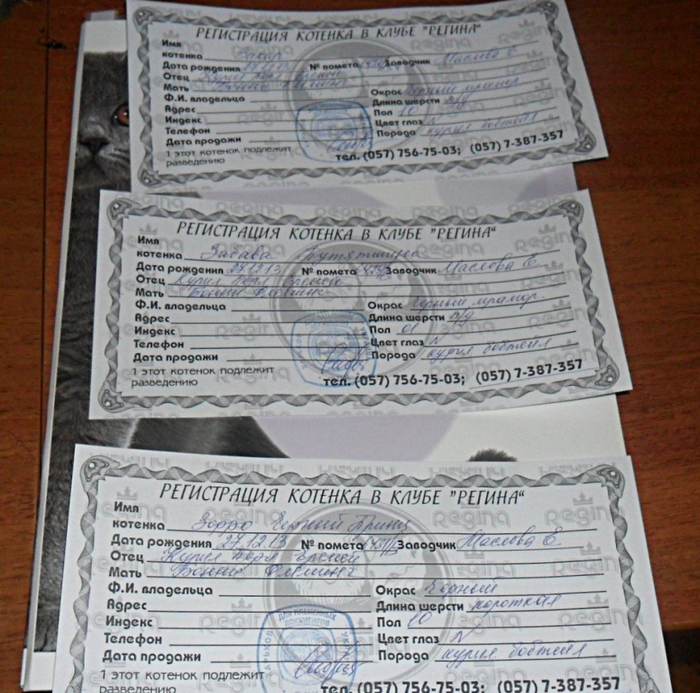 РЕГИСТРАЦИЯ КОТЕНКА В КЛУБЕ "РЕГИНА"
Имя
котенка
Дата рождения № помета Заводчик Маслова Е.
Отец Окрас черный мрамор
Мать Длина шерсти п/д
Ф.И. владельца Пол 10
Адрес Цвет глаз N
Индекс Порода курил бобтейл
Телефон
Дата продажи
1 этот котенок подлежит
разведению
тел. (057) 756-75-03; (057) 7-387-357
РЕГИСТРАЦИЯ КОТЕНКА В КЛУБЕ "РЕГИНА"
Имя
котенка Забава
Дата рождения 27.12.13 № помета Заводчик Маслова Е.
Отец Курил
Мать
Ф.И. владельца Окрас черный мрамор.
Адрес Длина шерсти п/д
Индекс Пол 01
Телефон Цвет глаз N
Дата продажи Порода курил бобтейл
1 этот котенок подлежит
разведению
тел. (057) 756-75-03; (057) 7-387-357
РЕГИСТРАЦИЯ КОТЕНКА В КЛУБЕ "РЕГИНА"
Имя
котенка Зорро Черный Принц
Дата рождения 27.12.13 № помета Заводчик Маслова Е.
Отец Курил
Мать
Ф.И. владельца Окрас Черный
Адрес Длина шерсти короткая
Индекс Пол 10
Телефон Цвет глаз N
Дата продажи Порода курил бобтейл
1 этот котенок подлежит
разведению
тел. (057) 756-75-03; (057) 7-387-357